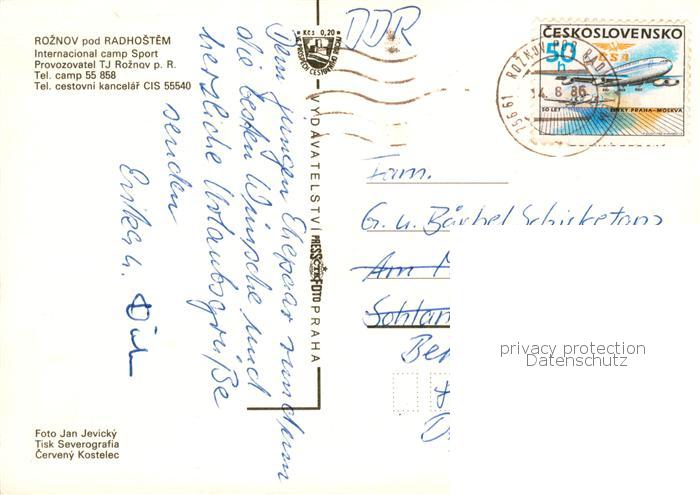 ROŽNOV pod RADHOŠTĚM
Internacional camp Sport
Provozovatel TJ Rožnov p. R.
Tel. camp 55 858
Tel. cestovní kancelář CIS 55540
Kčs 0,20
Dem jungen Ehepaar
die besten Wünsche und
herzliche Urlaubsgrüße
senden
Erika u.
VYDAVATELSTVÍ PRESSFOTO PRAHA
DDR
ČESKOSLOVENSKO
50 h
ČSA
50 LET LINKY PRAHA–MOSKVA
756 61 ROŽNOV POD RADH
14. 8. 86
Fam.
G. u. Bärbel Schicketanz
Am
privacy protection
Datenschutz
Foto Jan Jevický
Tisk Severografia
Červený Kostelec